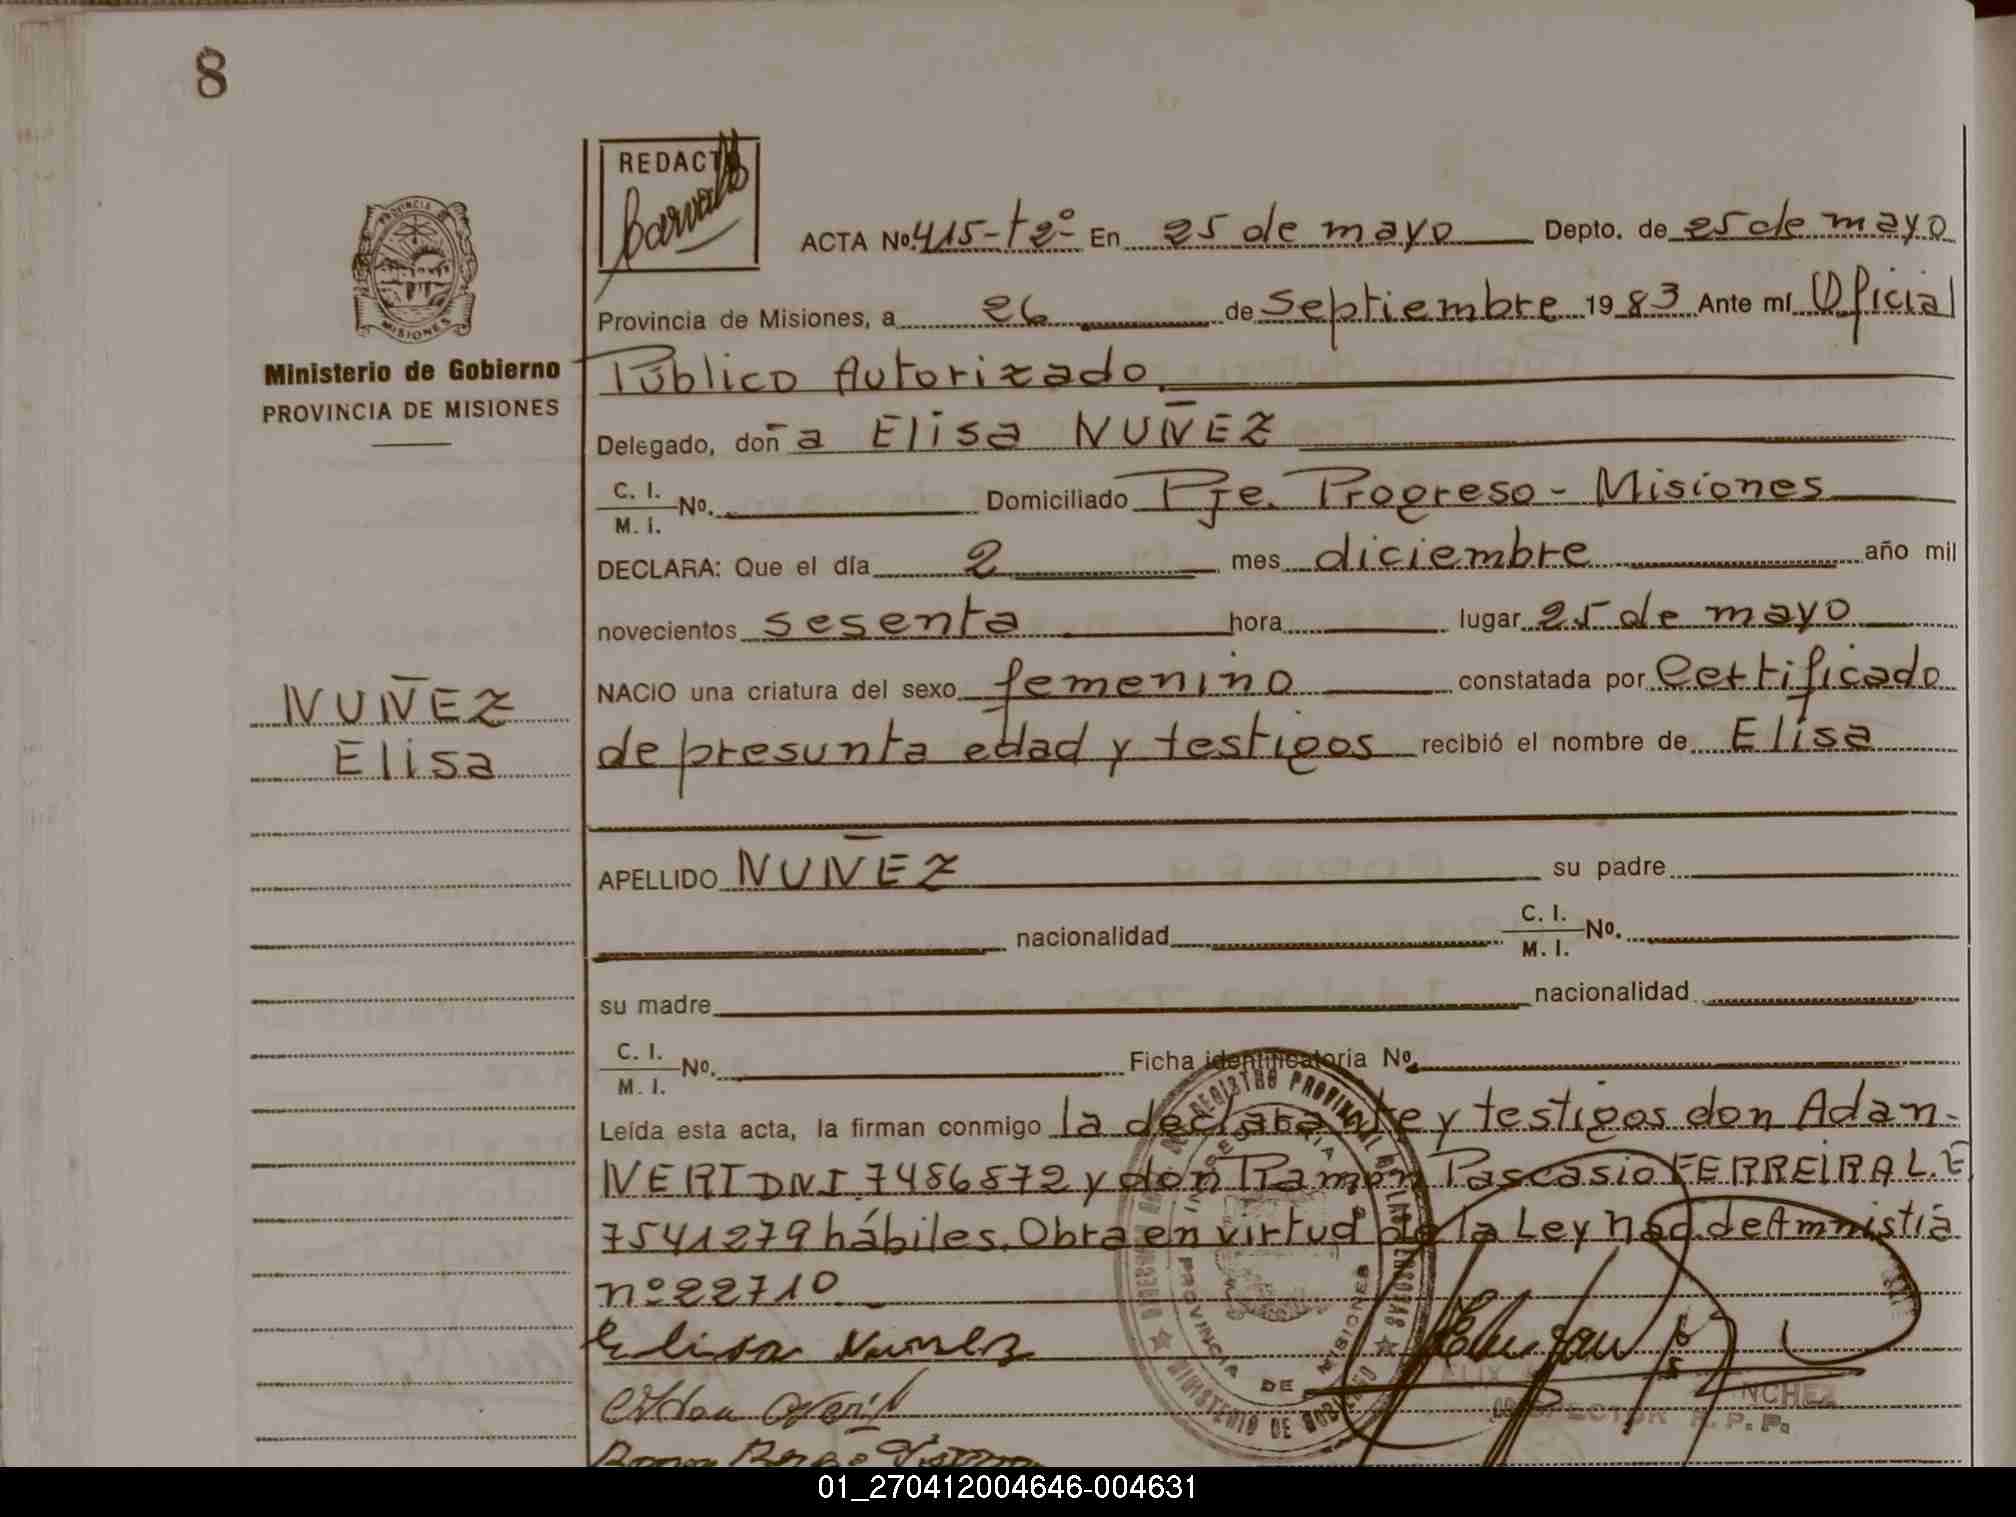 8
REDACTO
ACTA No. 415-tº2º- En 25 de mayo Depto. de 25 de mayo
Provincia de Misiones, a 26 de Septiembre 1983 Ante mí Oficial
Ministerio de Gobierno
Público Autorizado
PROVINCIA DE MISIONES
Delegado, doña Elisa NUÑEZ
C. I.
M. I. No. Domiciliado Pje. Progreso - Misiones
DECLARA: Que el día 2 mes diciembre año mil
novecientos sesenta hora lugar 25 de mayo
NUÑEZ
NACIO una criatura del sexo femenino constatada por Certificado
Elisa
de presunta edad y testigos recibió el nombre de Elisa
APELLIDO NUÑEZ su padre
nacionalidad C. I.
M. I. No.
su madre nacionalidad
C. I.
M. I. No. Ficha identificatoria No.
Leída esta acta, la firman conmigo la declarante y testigos don Adan-
NERI DNI. 7486872 y don Ramón Pascasio FERREIRA L.E
7541279 hábiles. Obra en virtud de la Ley Nac. de Amnistia
nº 22710
Elisa Nunez
REGISTRO PROVINCIAL DE LAS PERSONAS
MINISTERIO DE GOBIERNO
PROVINCIA DE MISIONES
INSPECTOR R. P. P.
01_270412004646-004631